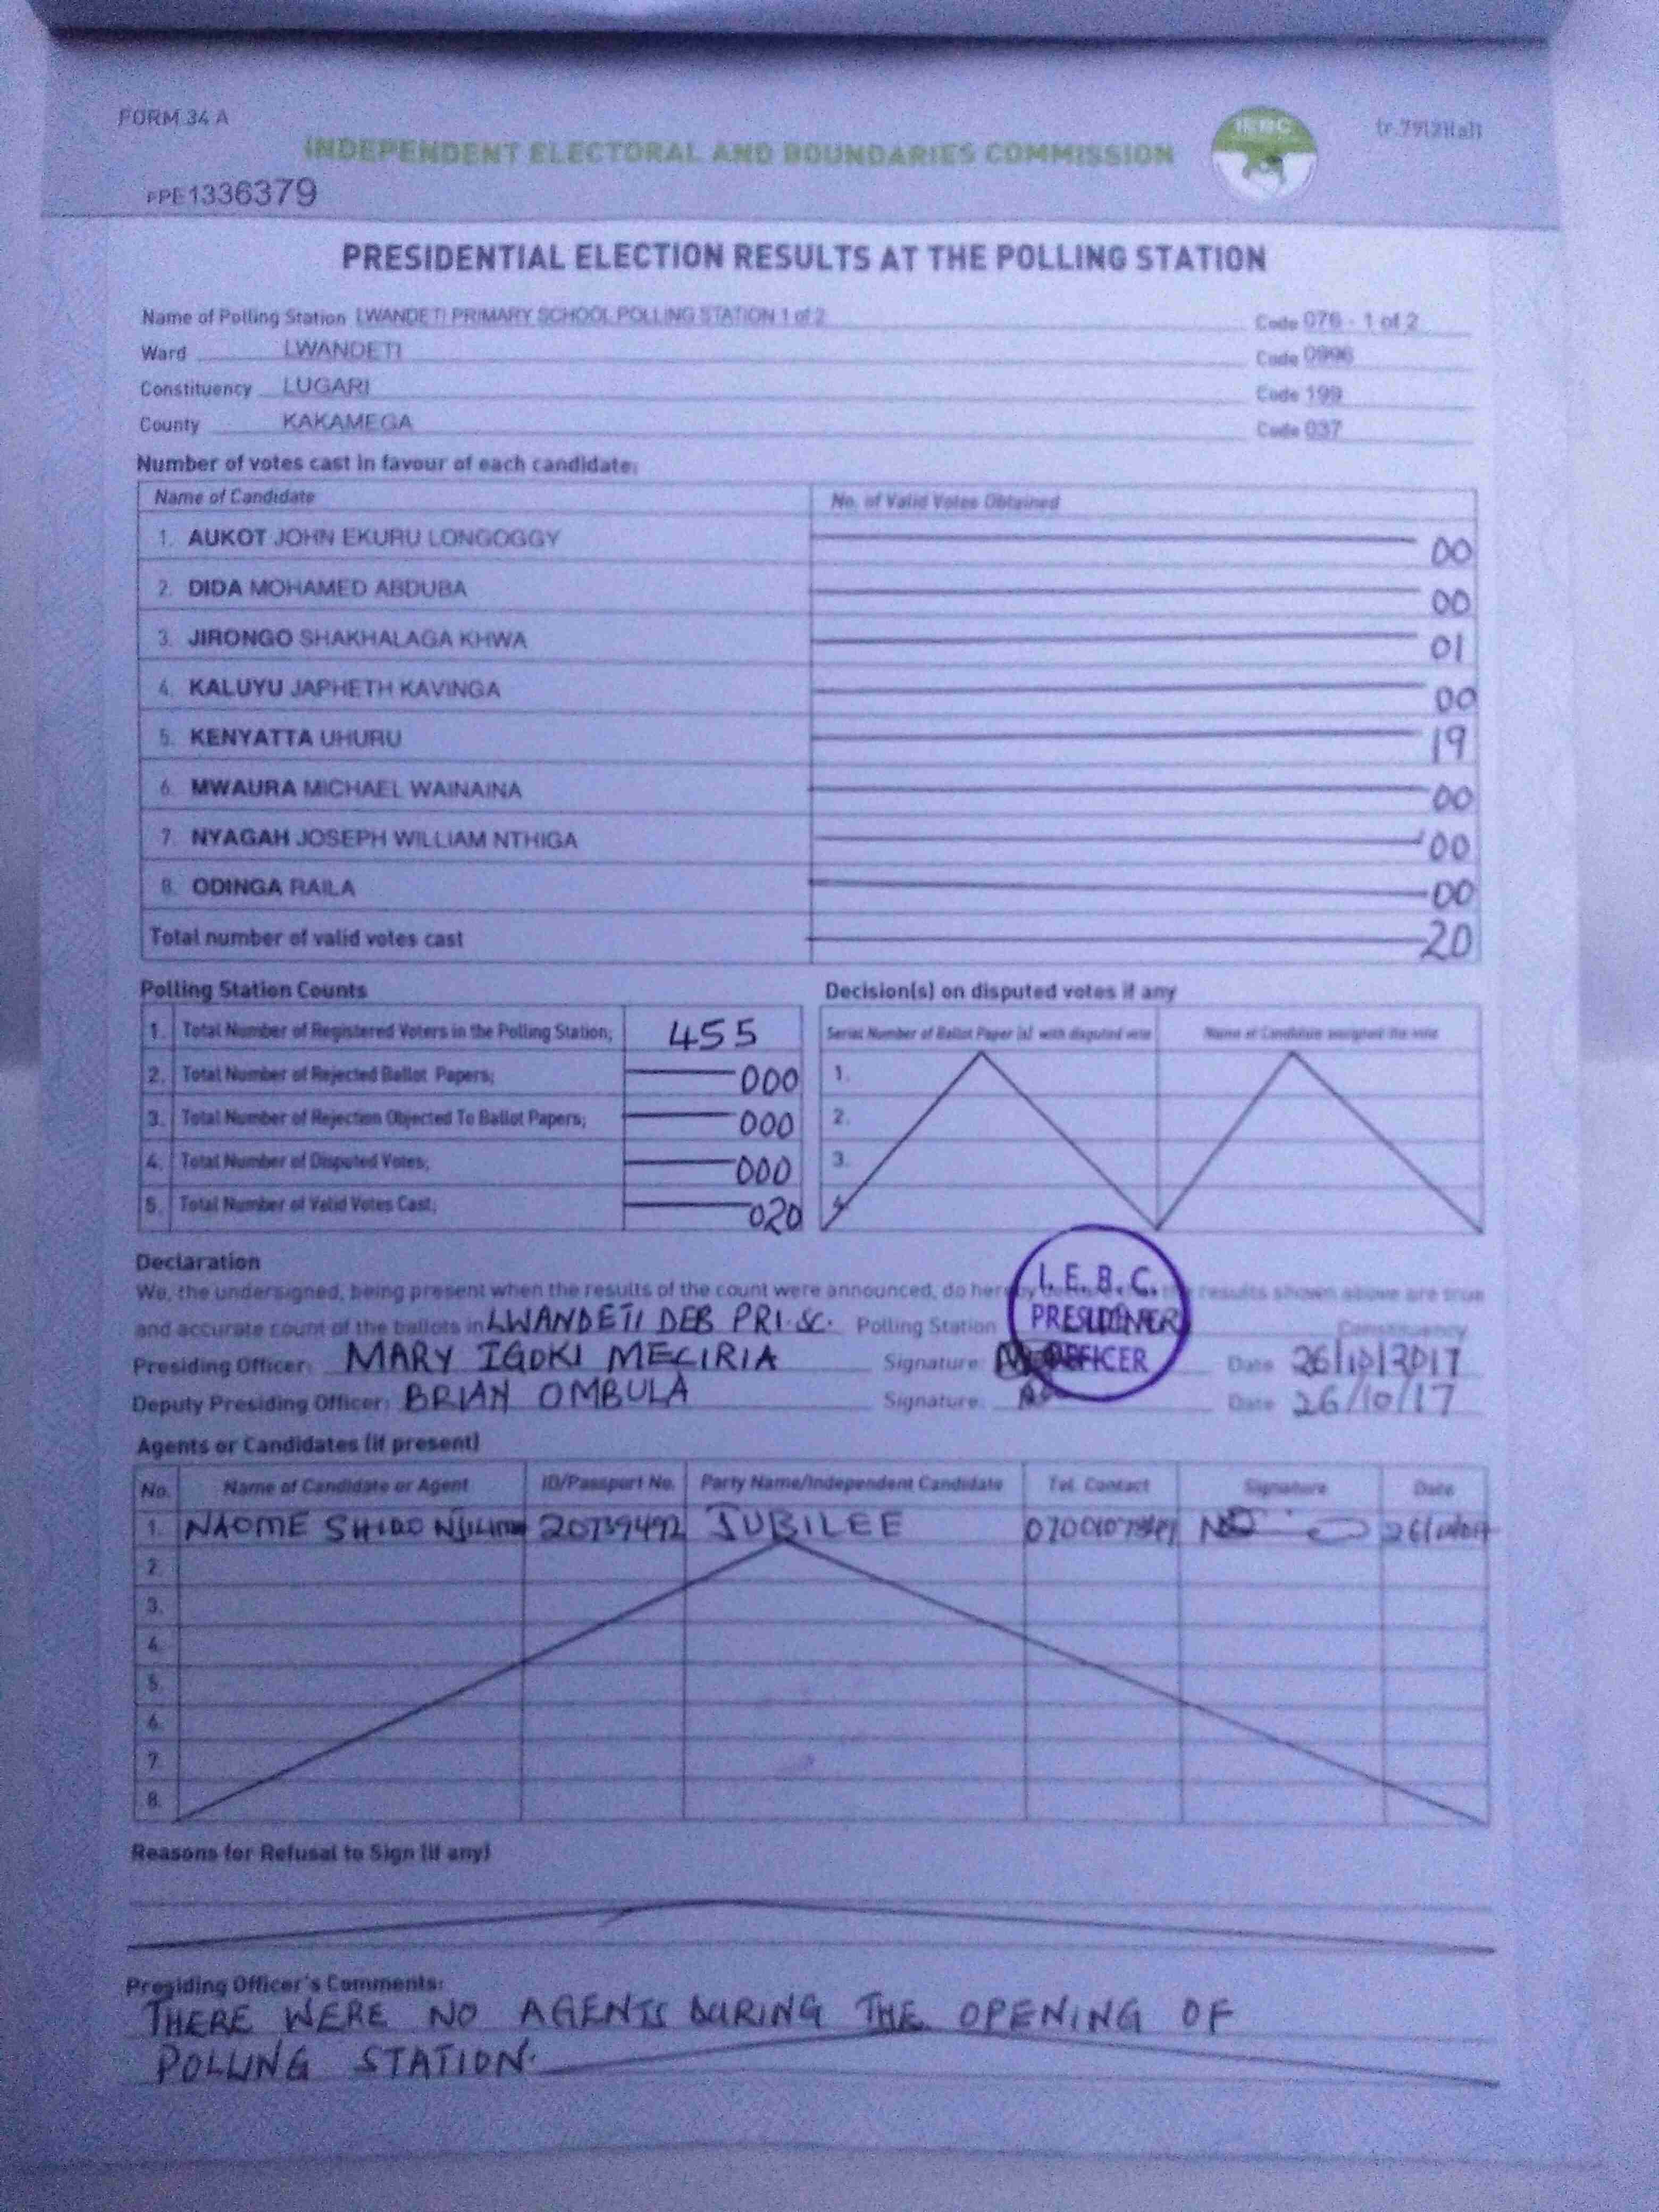 FORM 34 A
INDEPENDENT ELECTORAL AND BOUNDARIES COMMISSION
IEBC
PPE1336379
PRESIDENTIAL ELECTION RESULTS AT THE POLLING STATION
Name of Polling Station LWANDETI PRIMARY SCHOOL POLLING STATION 1 of 2 Code 076 - 1 of 2
Ward LWANDETI Code 0996
Constituency LUGARI Code 199
County KAKAMEGA Code 037
Number of votes cast in favour of each candidate:
Name of Candidate No. of Valid Votes Obtained
1. AUKOT JOHN EKURU LONGOGGY 00
2. DIDA MOHAMED ABDUBA 00
3. JIRONGO SHAKHALAGA KHWA 01
4. KALUYU JAPHETH KAVINGA 00
5. KENYATTA UHURU 19
6. MWAURA MICHAEL WAINAINA 00
7. NYAGAH JOSEPH WILLIAM NTHIGA 00
8. ODINGA RAILA 00
Total number of valid votes cast 20
Polling Station Counts
1. Total Number of Registered Voters in the Polling Station; 455
2. Total Number of Rejected Ballot Papers; 000
3. Total Number of Rejection Objected To Ballot Papers; 000
4. Total Number of Disputed Votes; 000
5. Total Number of Valid Votes Cast; 020
Decision(s) on disputed votes if any
Serial Number of Ballot Paper (s) with disputed vote Name of Candidate assigned the vote
1.
2.
3.
4.
Declaration
We, the undersigned, being present when the results of the count were announced, do hereby the results shown above are true
and accurate count of the ballots in LWANDETI DEB PRI. SC. Polling Station Constituency
I. E. B. C.
PRESIDING
OFFICER
Presiding Officer: MARY IGOKI MECIRIA Signature: Date 26/10/2017
Deputy Presiding Officer: BRIAN OMBULA Signature: Date 26/10/17
Agents or Candidates (if present)
No. Name of Candidate or Agent ID/Passport No. Party Name/Independent Candidate Tel. Contact Signature Date
1. NAOME SHIRO 20739492 JUBILEE
2.
3.
4.
5.
6.
7.
8.
Reasons for Refusal to Sign (if any)
Presiding Officer's Comments:
THERE WERE NO AGENTS DURING THE OPENING OF
POLLING STATION.